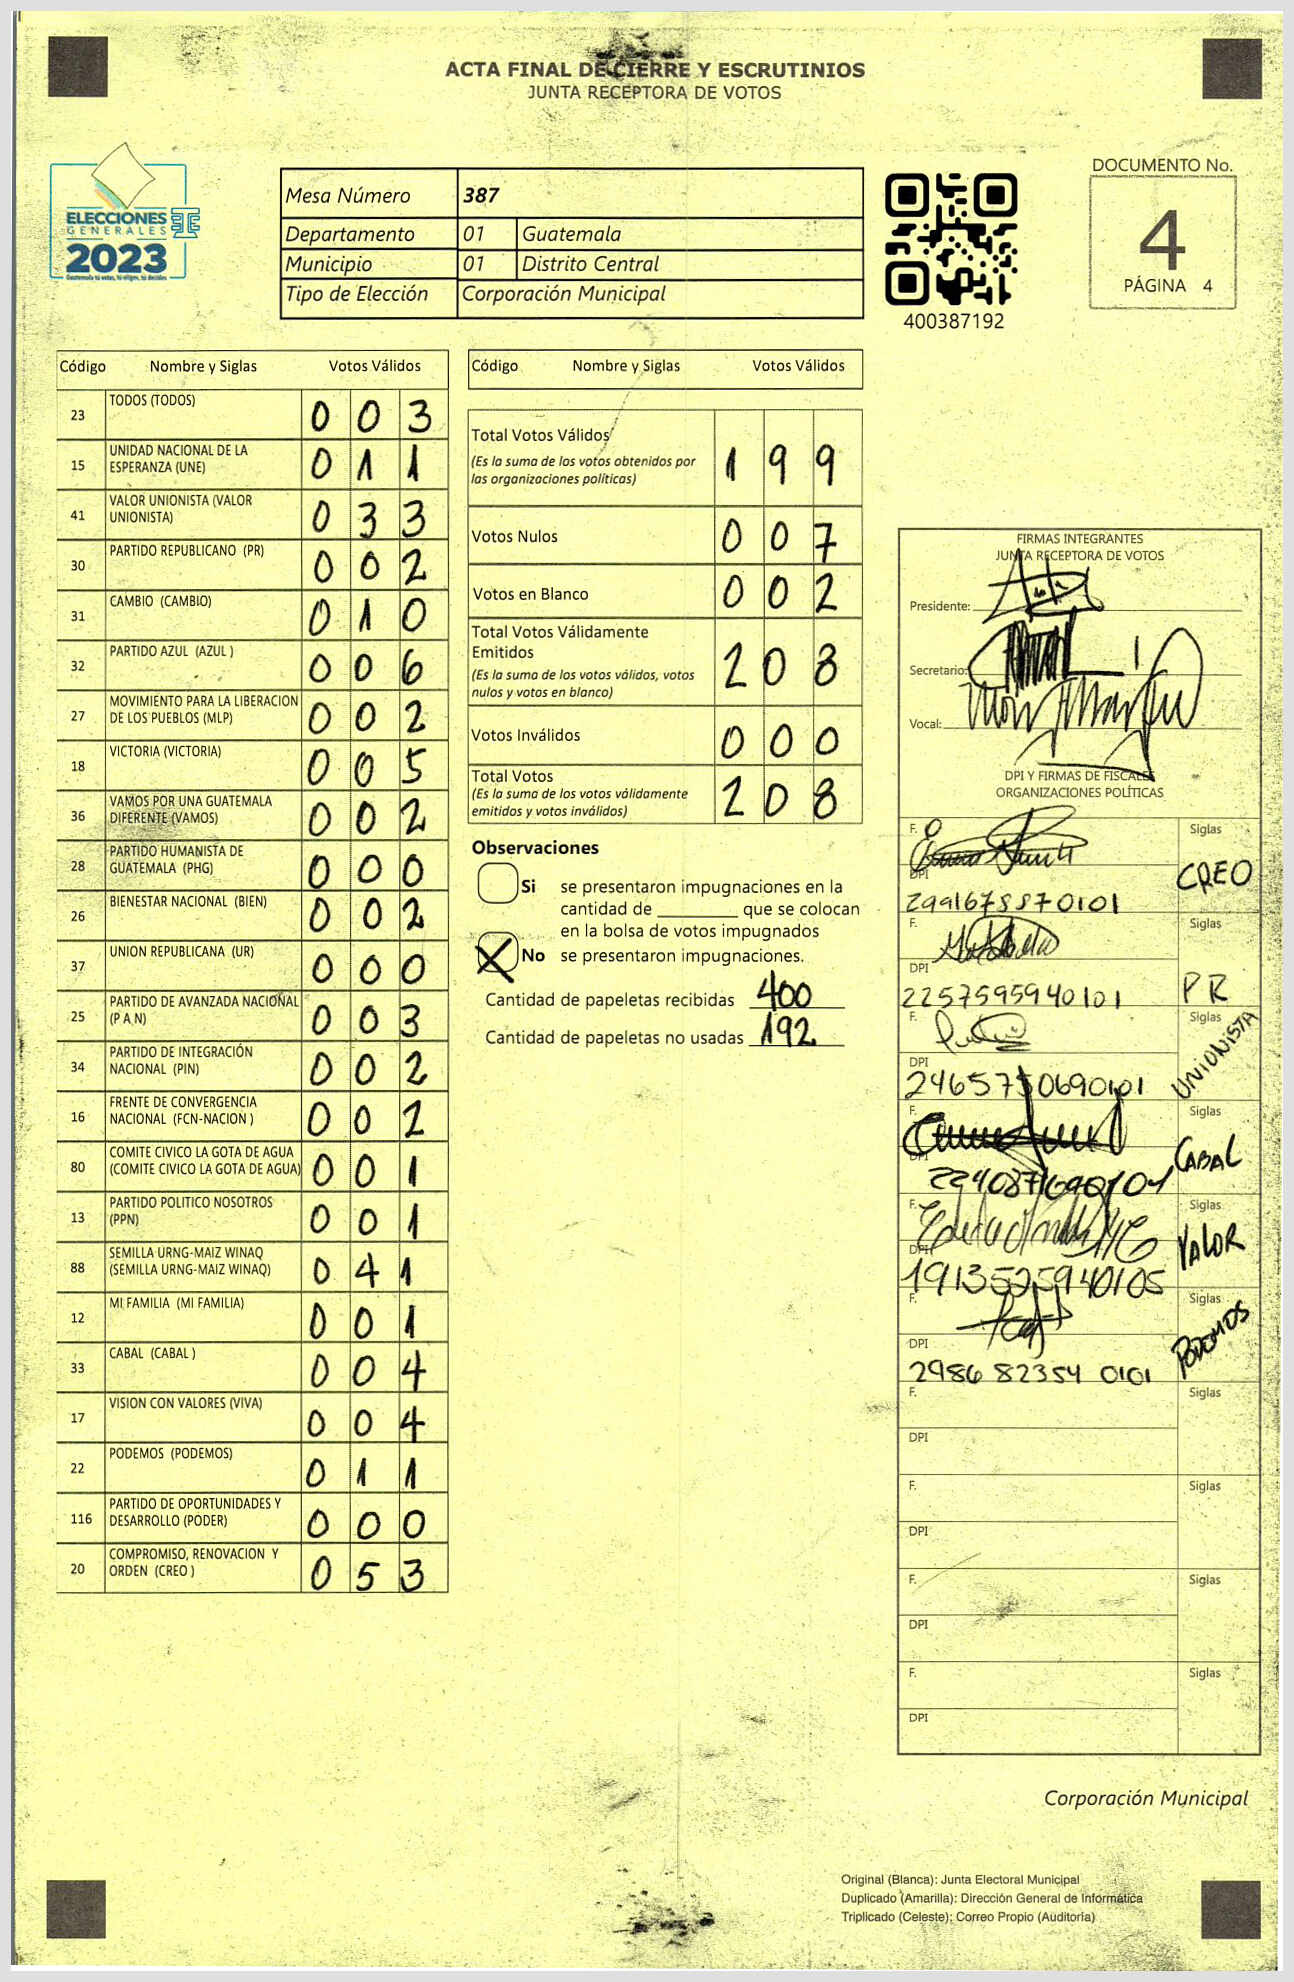 ACTA FINAL DE CIERRE Y ESCRUTINIOS
JUNTA RECEPTORA DE VOTOS
ELECCIONES
GENERALES
2023
Guatemala tú votas, tú eliges, tú decides
Mesa Número 387
Departamento 01 Guatemala
Municipio 01 Distrito Central
Tipo de Elección Corporación Municipal
400387192
DOCUMENTO No.
4
PÁGINA 4
Código Nombre y Siglas Votos Válidos
23 TODOS (TODOS) 0 0 3
15 UNIDAD NACIONAL DE LA ESPERANZA (UNE) 0 1 1
41 VALOR UNIONISTA (VALOR UNIONISTA) 0 3 3
30 PARTIDO REPUBLICANO (PR) 0 0 2
31 CAMBIO (CAMBIO) 0 1 0
32 PARTIDO AZUL (AZUL ) 0 0 6
27 MOVIMIENTO PARA LA LIBERACION DE LOS PUEBLOS (MLP) 0 0 2
18 VICTORIA (VICTORIA) 0 0 5
36 VAMOS POR UNA GUATEMALA DIFERENTE (VAMOS) 0 0 2
28 PARTIDO HUMANISTA DE GUATEMALA (PHG) 0 0 0
26 BIENESTAR NACIONAL (BIEN) 0 0 2
37 UNION REPUBLICANA (UR) 0 0 0
25 PARTIDO DE AVANZADA NACIONAL (P A N) 0 0 3
34 PARTIDO DE INTEGRACIÓN NACIONAL (PIN) 0 0 2
16 FRENTE DE CONVERGENCIA NACIONAL (FCN-NACION ) 0 0 2
80 COMITE CIVICO LA GOTA DE AGUA (COMITE CIVICO LA GOTA DE AGUA) 0 0 1
13 PARTIDO POLITICO NOSOTROS (PPN) 0 0 1
88 SEMILLA URNG-MAIZ WINAQ (SEMILLA URNG-MAIZ WINAQ) 0 4 1
12 MI FAMILIA (MI FAMILIA) 0 0 1
33 CABAL (CABAL ) 0 0 4
17 VISION CON VALORES (VIVA) 0 0 4
22 PODEMOS (PODEMOS) 0 1 1
116 PARTIDO DE OPORTUNIDADES Y DESARROLLO (PODER) 0 0 0
20 COMPROMISO, RENOVACION Y ORDEN (CREO ) 0 5 3
Código Nombre y Siglas Votos Válidos
Total Votos Válidos 1 9 9
(Es la suma de los votos obtenidos por
las organizaciones políticas)
Votos Nulos 0 0 7
Votos en Blanco 0 0 2
Total Votos Válidamente
Emitidos 2 0 8
(Es la suma de los votos válidos, votos
nulos y votos en blanco)
Votos Inválidos 0 0 0
Total Votos 2 0 8
(Es la suma de los votos válidamente
emitidos y votos inválidos)
Observaciones
Si se presentaron impugnaciones en la
cantidad de ________ que se colocan
en la bolsa de votos impugnados
X No se presentaron impugnaciones.
Cantidad de papeletas recibidas 400
Cantidad de papeletas no usadas 192
FIRMAS INTEGRANTES
JUNTA RECEPTORA DE VOTOS
Presidente:
Secretario:
Vocal:
DPI Y FIRMAS DE FISCALES
ORGANIZACIONES POLÍTICAS
F. Siglas
DPI CREO
2991678870101
F. Siglas
DPI PR
2257595940101
F. Siglas
DPI UNIONISTA
2465750690101
F. Siglas
DPI CABAL
F. Siglas
DPI VALOR
1913525940105
F. Siglas
DPI PODEMOS
2986 82354 0101
F. Siglas
DPI
F. Siglas
DPI
F. Siglas
DPI
F. Siglas
DPI
Corporación Municipal
Original (Blanca): Junta Electoral Municipal
Duplicado (Amarilla): Dirección General de Informática
Triplicado (Celeste): Correo Propio (Auditoría)